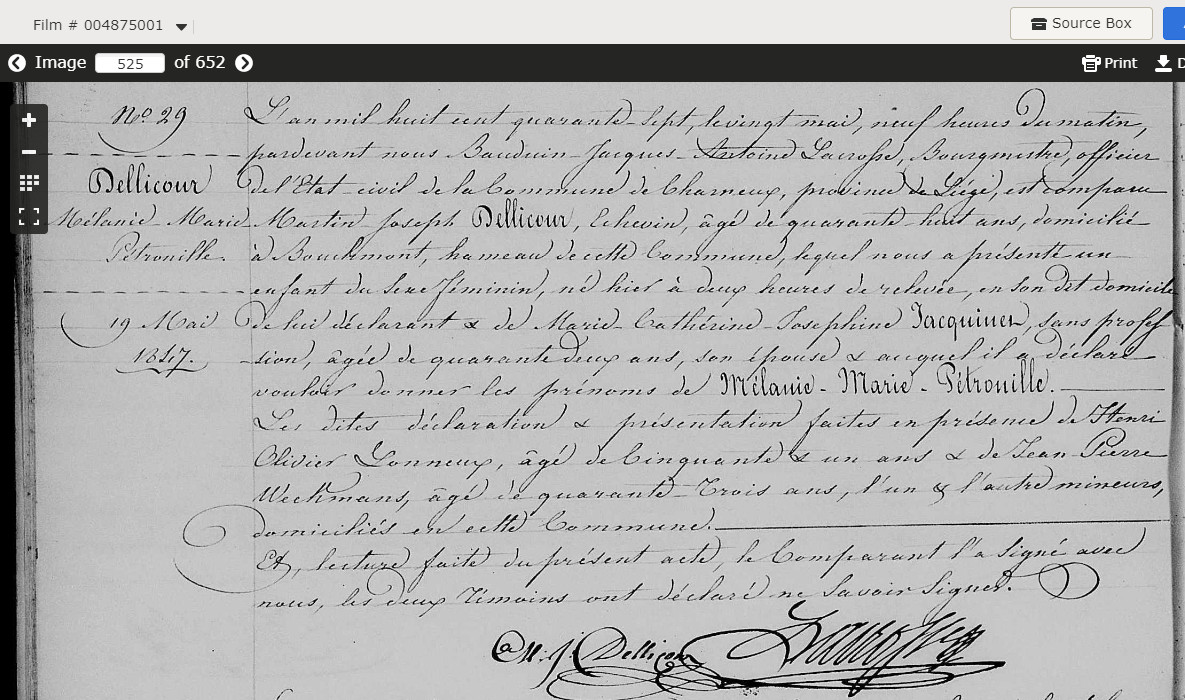 Film # 004875001
Source Box
Image 525 of 652
Print
D
Nº 29
Dellicour
Mélanie Marie
Pétronille.
19 Mai
1847.
L'an mil huit cent quarante-sept, le vingt mai, neuf heures du matin,
pardevant nous Bauduin-Jacques-Antoine Lacrosse, Bourgmestre, officier
de l'État civil de la Commune de Charneux, province de Liége, est comparu
Martin Joseph Dellicour, Echevin, âgé de quarante-huit ans, domicilié
à Bouxhmont, hameau de cette Commune, lequel nous a présenté un
enfant du sexe féminin, né hier à deux heures de relevée, en son dit domicile
de lui déclarant & de Marie-Cathérine-Josephine Jacquinet, sans profes
sion, âgée de quarante deux ans, son épouse & auquel il a déclaré
vouloir donner les prénoms de Mélanie-Marie-Pétronille.
Les dites déclaration & présentation faites en présence de Henri
Olivier Lonneux, âgé de Cinquante & un ans & de Jean-Pierre
Weckmans, âgé de quarante-trois ans, l'un & l'autre mineurs,
domiciliés en cette Commune.
Et, lecture faite du présent acte, le Comparant l'a signé avec
nous, les deux témoins ont déclaré ne savoir signer.
M. J. Dellicour Lacrosse